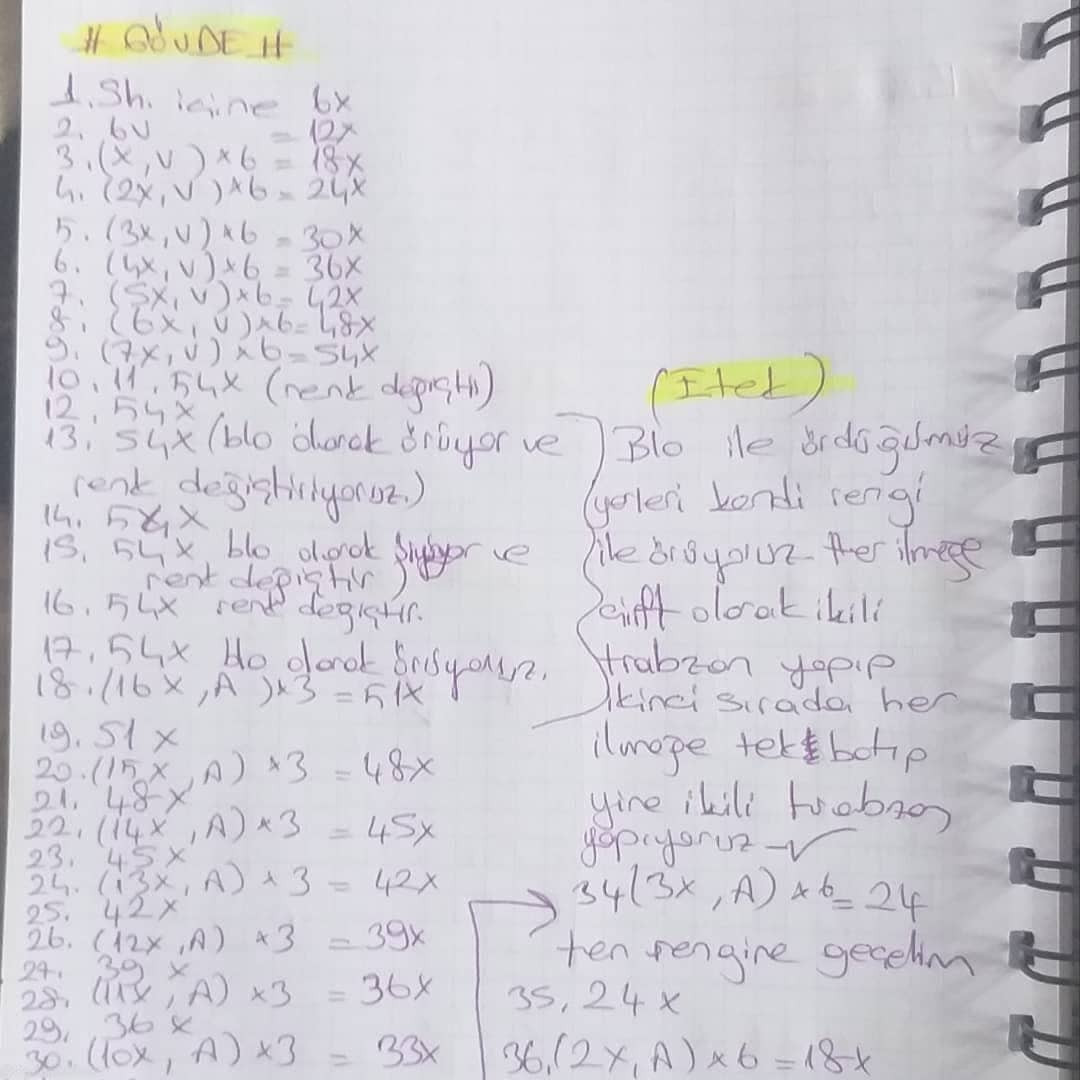 # GÖVDE #
1. Sh. içine 6x
2. 6V = 12x
3. (x, V) x6 = 18x
4. (2x, V) x6 = 24x
5. (3x, V) x6 = 30x
6. (4x, V) x6 = 36x
7. (5x, V) x6 = 42x
8. (6x, V) x6 = 48x
9. (7x, V) x6 = 54x
10. 11. 54x (renk değişti)
12. 54x
13. 54x (blo olarak örüyor ve
renk değiştiriyoruz.)
14. 54x
15. 54x blo olarak örüyor ve
renk değiştir)
16. 54x renk değiştir.
17. 54x blo olarak örüyoruz.
18. (16x, A) x3 = 51x
19. 51x
20. (15x, A) x3 = 48x
21. 48x
22. (14x, A) x3 = 45x
23. 45x
24. (13x, A) x3 = 42x
25. 42x
26. (12x, A) x3 = 39x
27. 39x
28. (11x, A) x3 = 36x
29. 36x
30. (10x, A) x3 = 33x
(Etek)
Blo ile ördüğümüz
yerleri kendi rengi
ile örüyoruz her ilmeğe
çift olarak ikili
trabzan yapıp
ikinci sırada her
ilmeğe tek batıp
yine ikili trabzan
yapıyoruz
34 (3x, A) x6 = 24
ten rengine geçelim
35. 24x
36. (2x, A) x6 = 18x